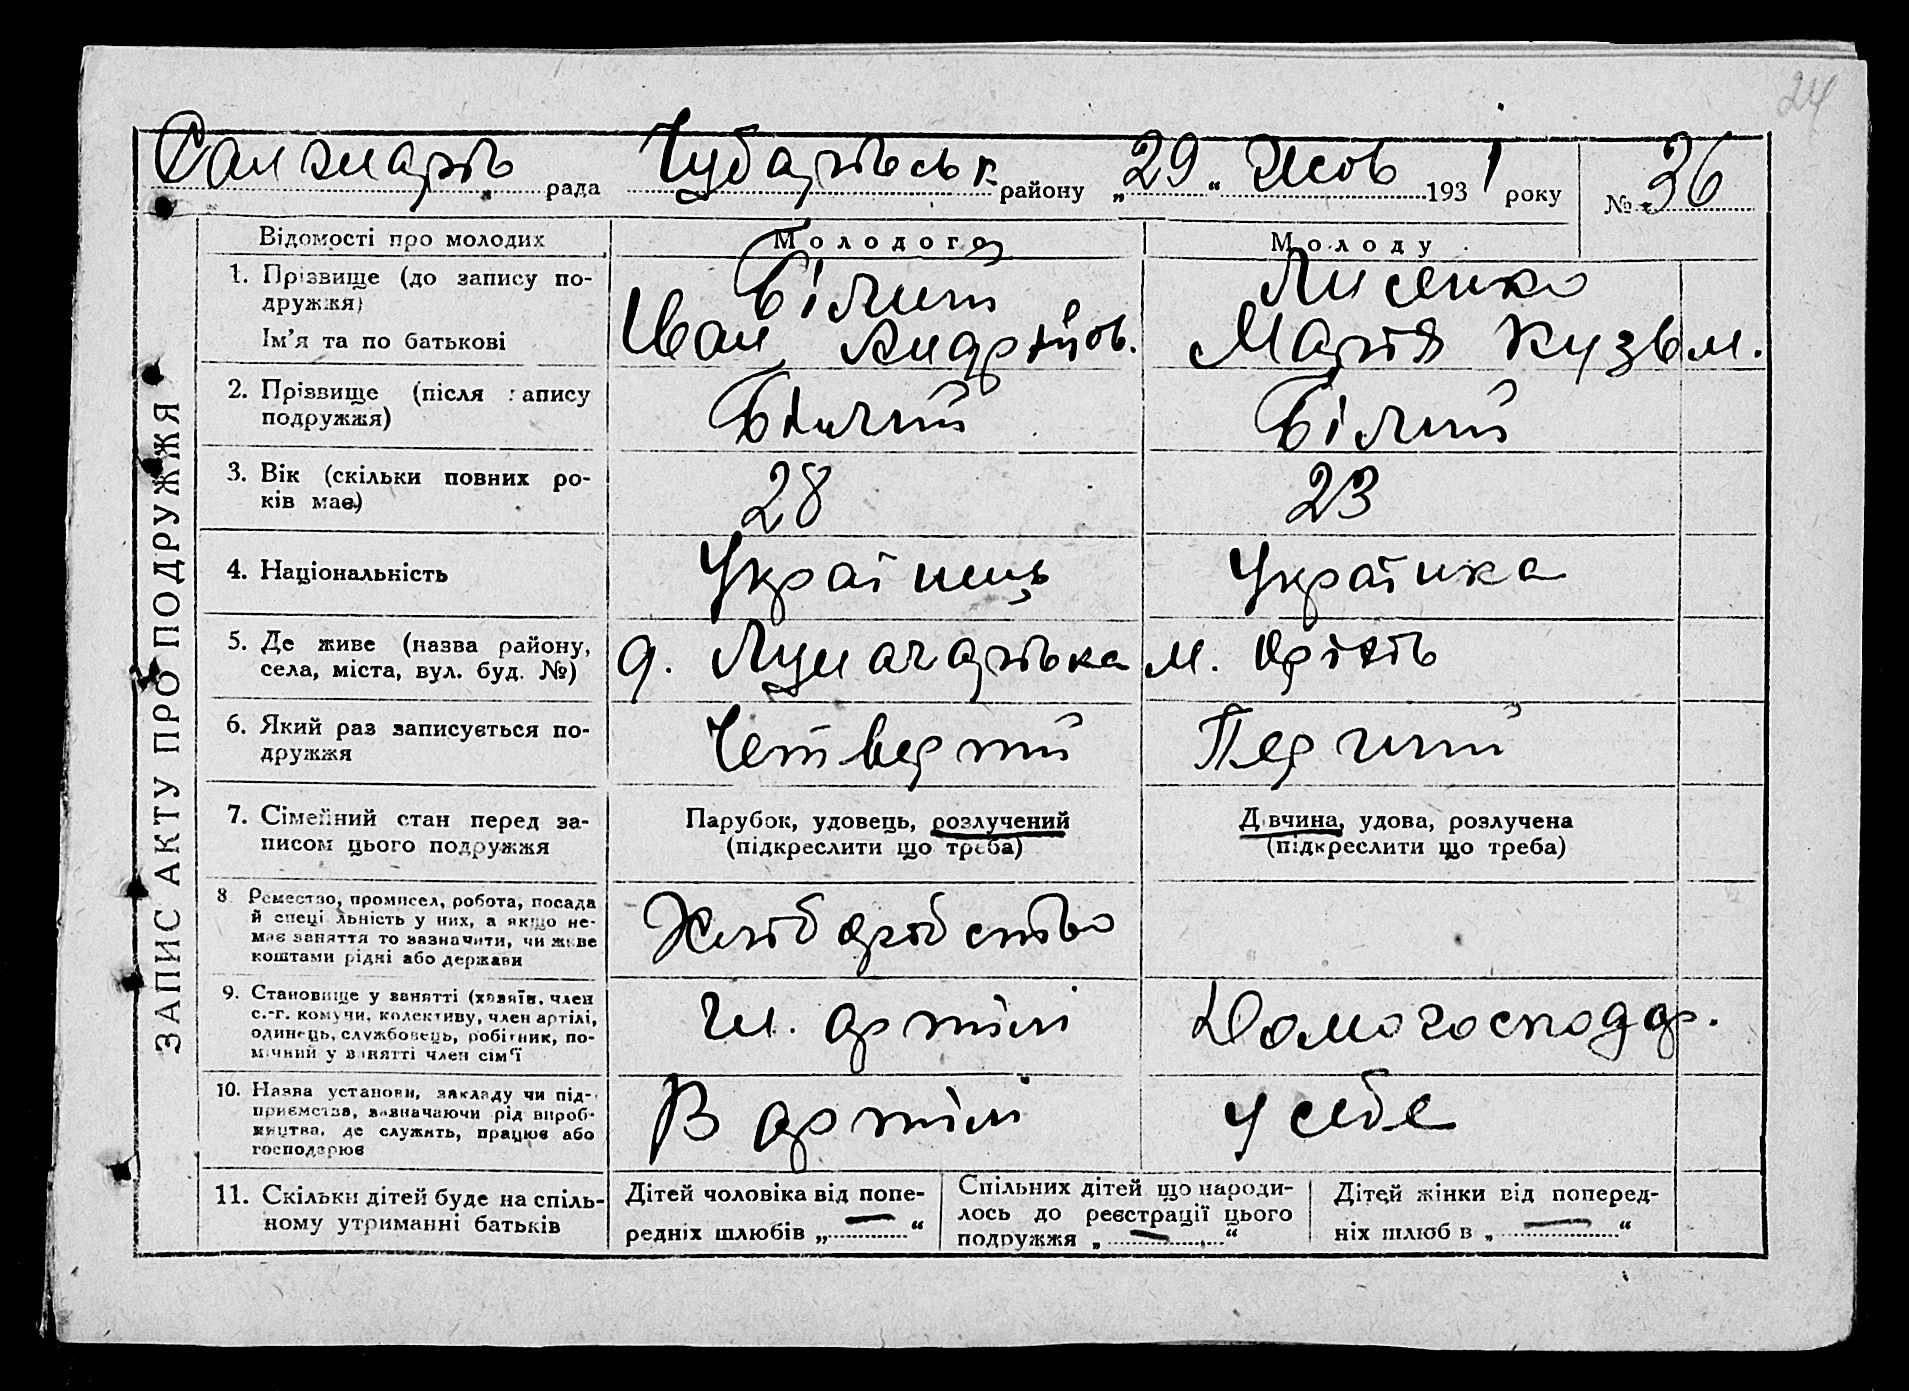 24
рада Чубарівськ. району „29“ Жов 1931 року № 36
ЗАПИС АКТУ ПРО ПОДРУЖЖЯ
Відомості про молодих
Молодого
Молоду
1. Прізвище (до запису по-
дружжя)
Ім'я та по батькові
Білий
Іван Андрійов.
Лисенко
Марія Кузьм.
2. Прізвище (після запису
подружжя)
Білий
Білий
3. Вік (скільки повних ро-
ків має)
28
23
4. Національність
Українець
Українка
5. Де живе (назва району,
села, міста, вул. буд. №)
Луначарівка
м. Оріхів
6. Який раз записується по-
дружжя
Четвертий
Перший
7. Сімейний стан перед за-
писом цього подружжя
Парубок, удовець, розлучений
(підкреслити що треба)
Дівчина, удова, розлучена
(підкреслити що треба)
8 Ремество, промисел, робота, посада
й спеціяльність у них, а якщо не-
має заняття то зазначити, чи живе
коштами рідні або держави
Хліборобство
9. Становище у занятті (хазяїн, член
с.-г. комуни, колективу, член артілі,
одинець, службовець, робітник, по-
мічний у занятті член сім'ї
Чл. артілі
Домогосподар.
10. Назва установи, закладу чи під-
приємства, зазначаючи рід вироб-
ництва, де служить, працює або
господарює
В артілі
У себе
11. Скільки дітей буде на спіль-
ному утриманні батьків
Дітей чоловіка від попе-
редніх шлюбів „—“
Спільних дітей що народи-
лось до реєстрації цього
подружжя „—“
Дітей жінки від поперед-
ніх шлюбів „—“